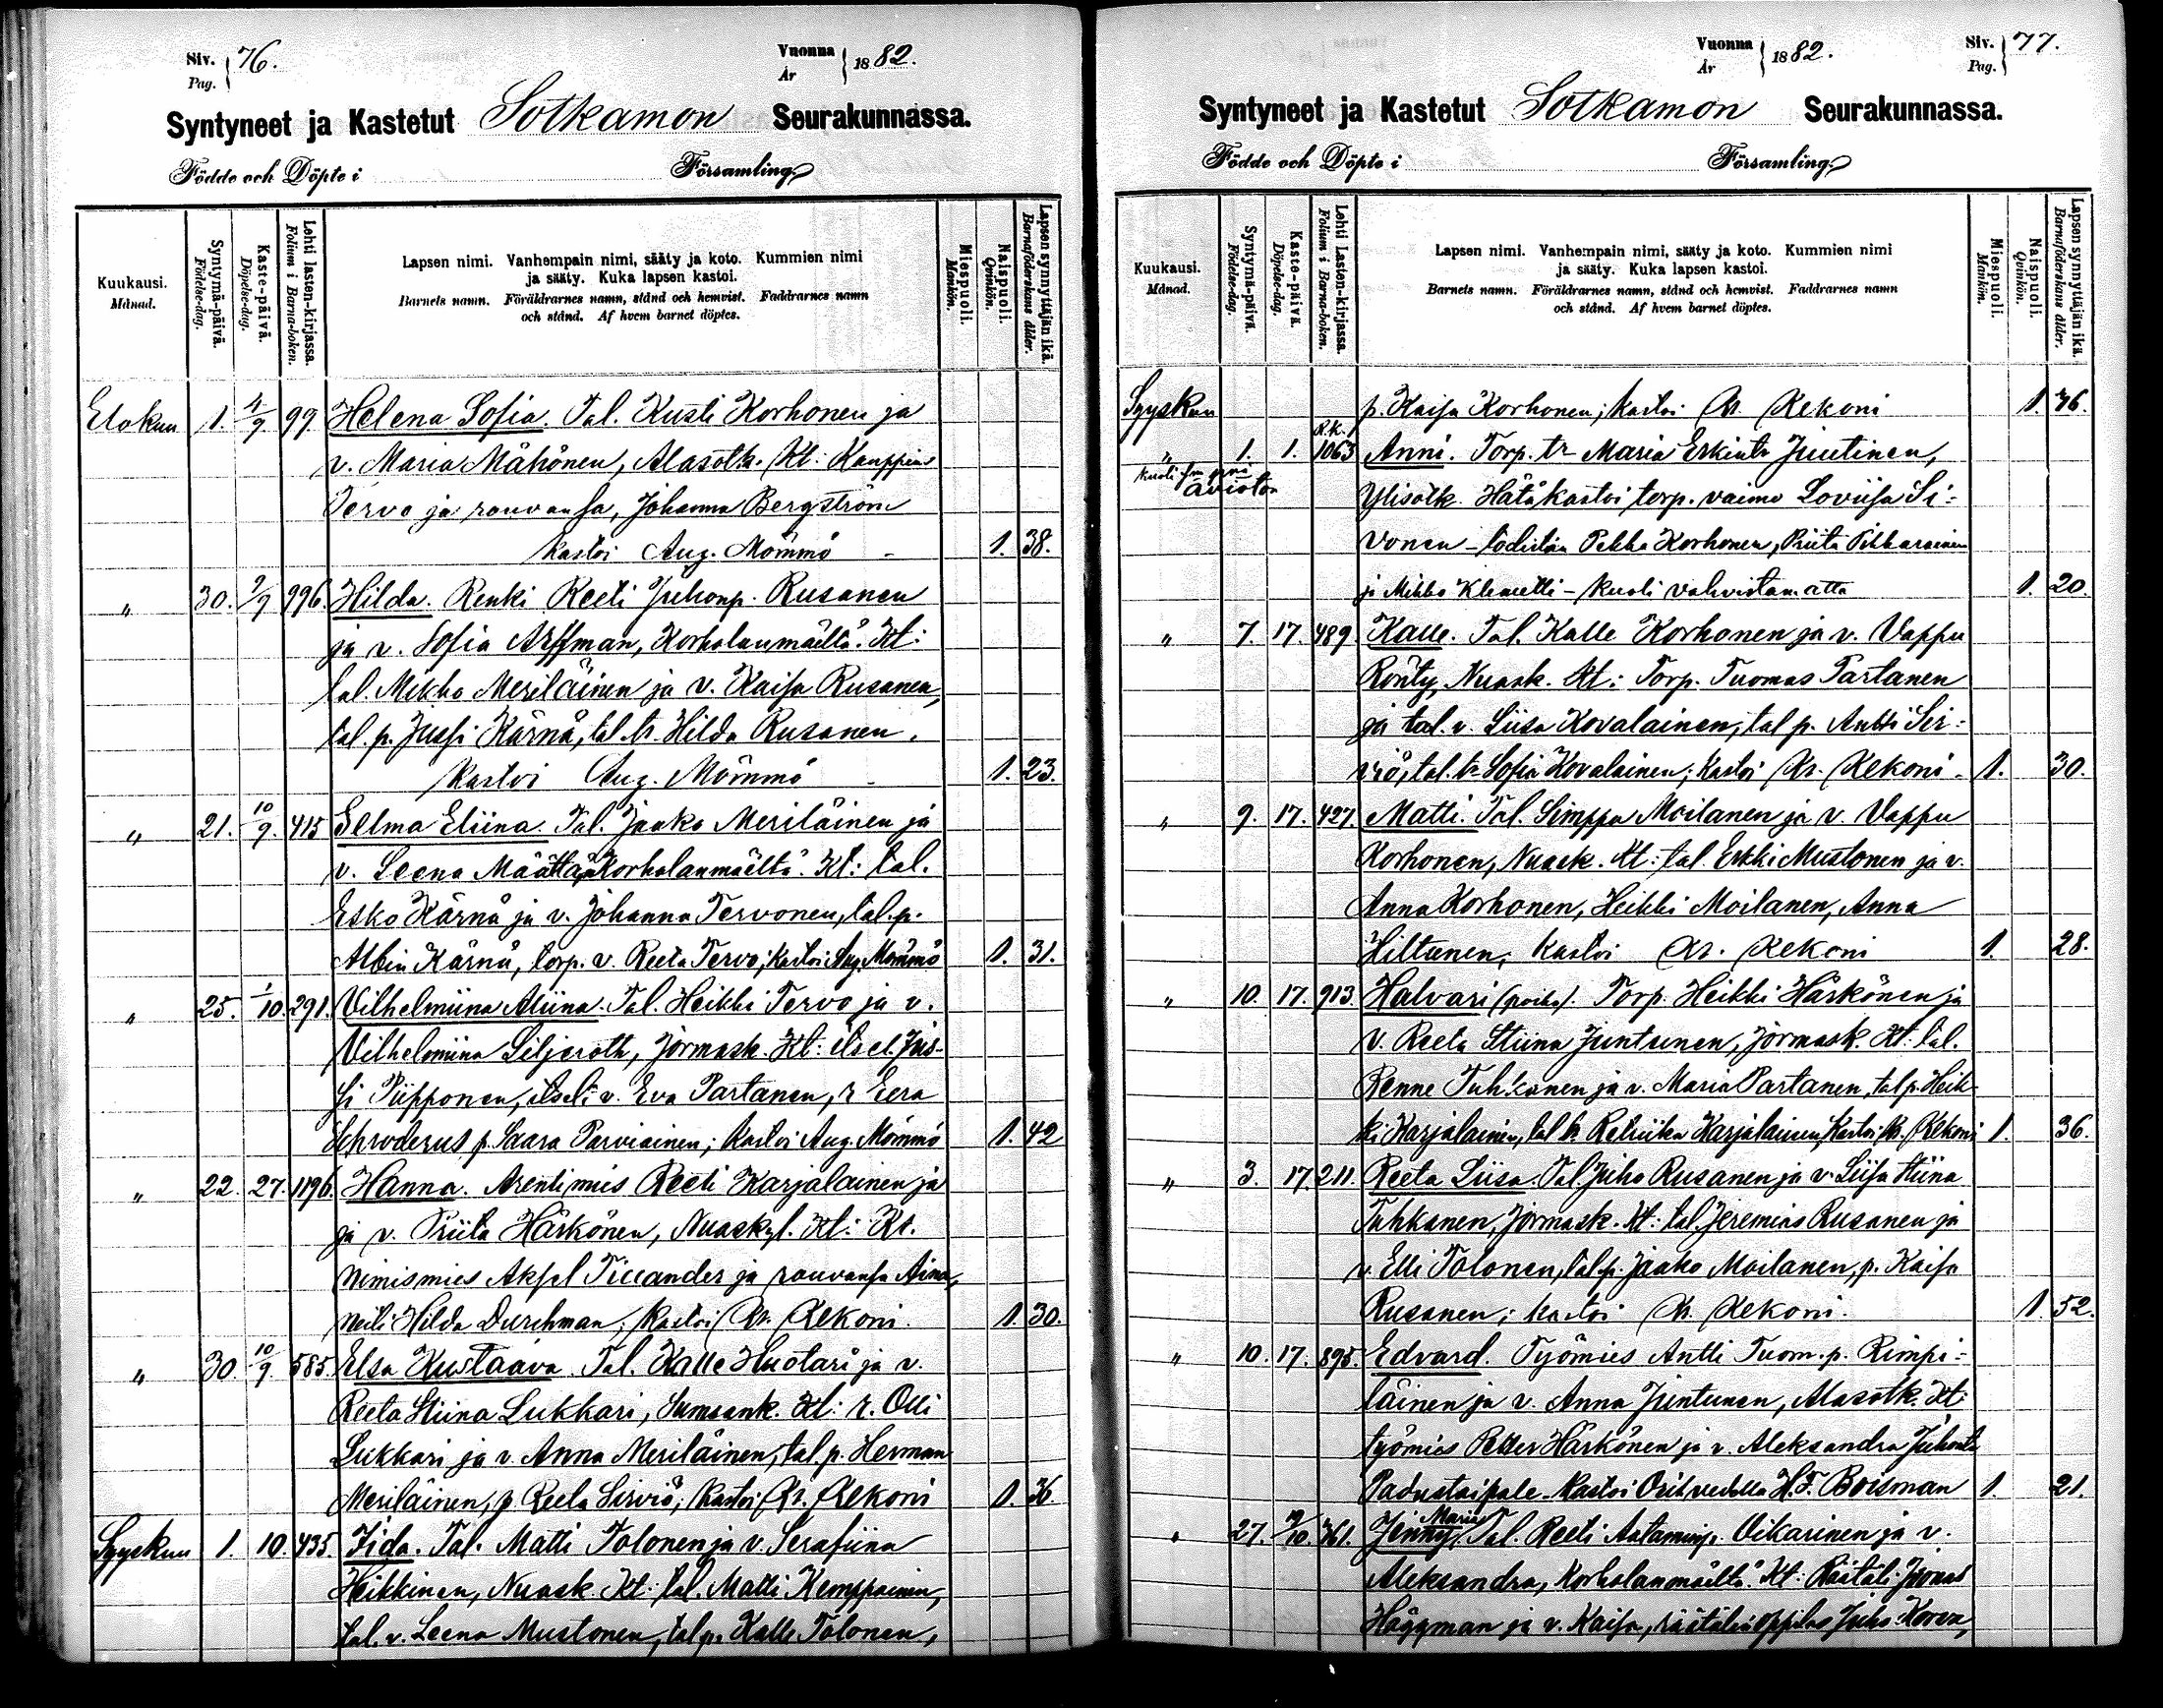 Siv. Pag. 76.
Vuonna År 1882.
Syntyneet ja Kastetut Sotkamon Seurakunnassa.
Födde och Döpte i Församling.
Kuukausi. Månad.
Syntymä-päivä. Födelse-dag.
Kaste-päivä. Döpelse-dag.
Lehti lasten-kirjassa. Folium i Barna-boken.
Lapsen nimi. Vanhempain nimi, sääty ja koto. Kummien nimi
ja sääty. Kuka lapsen kastoi.
Barnets namn. Föräldrarnes namn, stånd och hemvist. Faddrarnes namn
och stånd. Af hvem barnet döptes.
Miespuoli. Mankön.
Naispuoli. Qvinkön.
Lapsen synnyttäjän ikä. Barnaföderskans ålder.
Elokuu 1. 4/9 99. Helena Sofia. Tal. Kusti Korhonen ja
v. Maria Mähönen, Alasotk. Kt: Kauppias
Tervo ja rouvansa, Johanna Bergström
kastoi Aug. Mömmö - 1. 38.
" 30. 2/9 996. Hilda. Renki Reeti Juhonp. Rusanen
ja v. Sofia Arffman, Korholanmäeltä. Kt:
tal. Mikko Meriläinen ja v. Kaisa Rusanen,
tal. p. Jussi Kärnä, tal. tr. Hilda Rusanen.
kastoi Aug. Mömmö - 1. 23.
" 21. 10/9. 415 Selma Eliina. Tal. Jaako Meriläinen ja
v. Leena Määttä, Korholanmäeltä. Kt: tal.
Esko Kärnä ja v. Johanna Tervonen, tal. p.
Albin Kärnä, torp. v. Reeta Tervo; kastoi Aug. Mömmö 1. 31.
" 25. 1/10. 291. Vilhelmiina Aliina. Tal. Heikki Tervo ja v.
Vilhelmiina Liljeroth, Jormask. Kt: itsel. Jus-
si Piipponen, itsel. v. Eva Partanen, r. Eera
Schroderus p. Saara Parviainen; kastoi Aug. Mömmö 1. 42
" 22. 27. 1196. Hanna. Arentimies Reeti Karjalainen ja
ja v. Priita Härkönen, Nuaskyl. Kt: Kr.
nimismies Aksel Ticcander ja rouvansa Aina,
neiti Hilda Durchman; kastoi Kr. Rekoni. 1. 30.
" 30. 10/9. 585. Elsa Kustaava. Tal. Kalle Huotari ja v.
Reeta Stiina Lukkari, Sumsank. Kt: r. Olli
Lukkari ja v. Anna Meriläinen, tal. p. Herman
Meriläinen, p. Reeta Sirviö; kastoi Kr. Rekoni 1. 36.
Syyskuu 1. 10. 435. Iida. Tal. Matti Tolonen ja v. Serafiina
Heikkinen, Nuask. Kt: tal. Matti Kemppainen,
tal. v. Leena Mustonen, tal p. Kalle Tolonen,
Vuonna År 1882.
Siv. Pag. 77.
Syntyneet ja Kastetut Sotkamon Seurakunnassa.
Födde och Döpte i Församling.
Kuukausi. Månad.
Syntymä-päivä. Födelse-dag.
Kaste-päivä. Döpelse-dag.
Lehti Lasten-kirjassa. Folium i Barna-boken.
Lapsen nimi. Vanhempain nimi, sääty ja koto. Kummien nimi
ja sääty. Kuka lapsen kastoi.
Barnets namn. Föräldrarnes namn, stånd och hemvist. Faddrarnes namn
och stånd. Af hvem barnet döptes.
Miespuoli. Mankön.
Naispuoli. Qvinkön.
Lapsen synnyttäjän ikä. Barnaföderskans ålder.
Syyskuu p. Kaisa Korhonen; kastoi Kr. Rekoni 1. 36.
" 1. 1. R.k. 1063 Anni. Torp. tr Maria Erkintr Juutinen,
kuoli avioton Ylisotk. Hätäkastoi torp. vaimo Loviisa Si-
vonen - todistaa Pekka Korhonen, Priita Pikkarainen
ja Mikko Klemetti - kuoli vahvistamatta 1. 20.
" 7. 17. 489. Kalle. Tal. Kalle Korhonen ja v. Vappu
Rönty, Nuask. Kt: Torp. Tuomas Partanen
ja tal. v. Liisa Kovalainen, tal p. Antti Sir-
viö, tal. tr Sofia Kovalainen; kastoi Kr. Rekoni - 1. 30.
" 9. 17. 427. Matti. Tal. Simppa Moilanen ja v. Vappu
Korhonen, Nuask. Kt: tal. Erkki Mustonen ja v.
Anna Korhonen, Heikki Moilanen, Anna
Hiltunen, kastoi Kr. Rekoni 1. 28.
" 10. 17. 913. Halvari (poika). Torp. Heikki Härkönen ja
v. Reeta Stiina Juntunen, Jormask. Kt: tal.
Renne Tuhkanen ja v. Maria Partanen, tal p. Heik-
ki Karjalainen, tal tr. Retriika Karjalainen, kastoi Kr. Rekoni 1. 36.
" 3. 17. 211. Reeta Liisa. Tal. Juho Rusanen ja v. Liisa Stiina
Tuhkanen, Jormask. Kt: tal. Jeremias Rusanen ja
v. Elli Tolonen, tal. p. Jaako Moilanen, p. Kaisa
Rusanen; kastoi Kr. Rekoni. 1. 52.
" 10. 17. 895. Edvard. Työmies Antti Tuom. p. Rimpi-
läinen ja v. Anna Juntunen, Alasotk. Kt:
työmies Petter Härkönen ja v. Aleksandra Juhontr
Padustaipale - kastoi Orihvedellä H. F. Boisman 1. 21.
" 27. 361. Jenny Maria. Tal. Reeti Aataminp. Vikarinen ja v.
Aleksandra, Korholanmäeltä. Kt: Räätäli Joonas
Häggman ja v. Kaisa, räätälinoppilas Juho Korva,